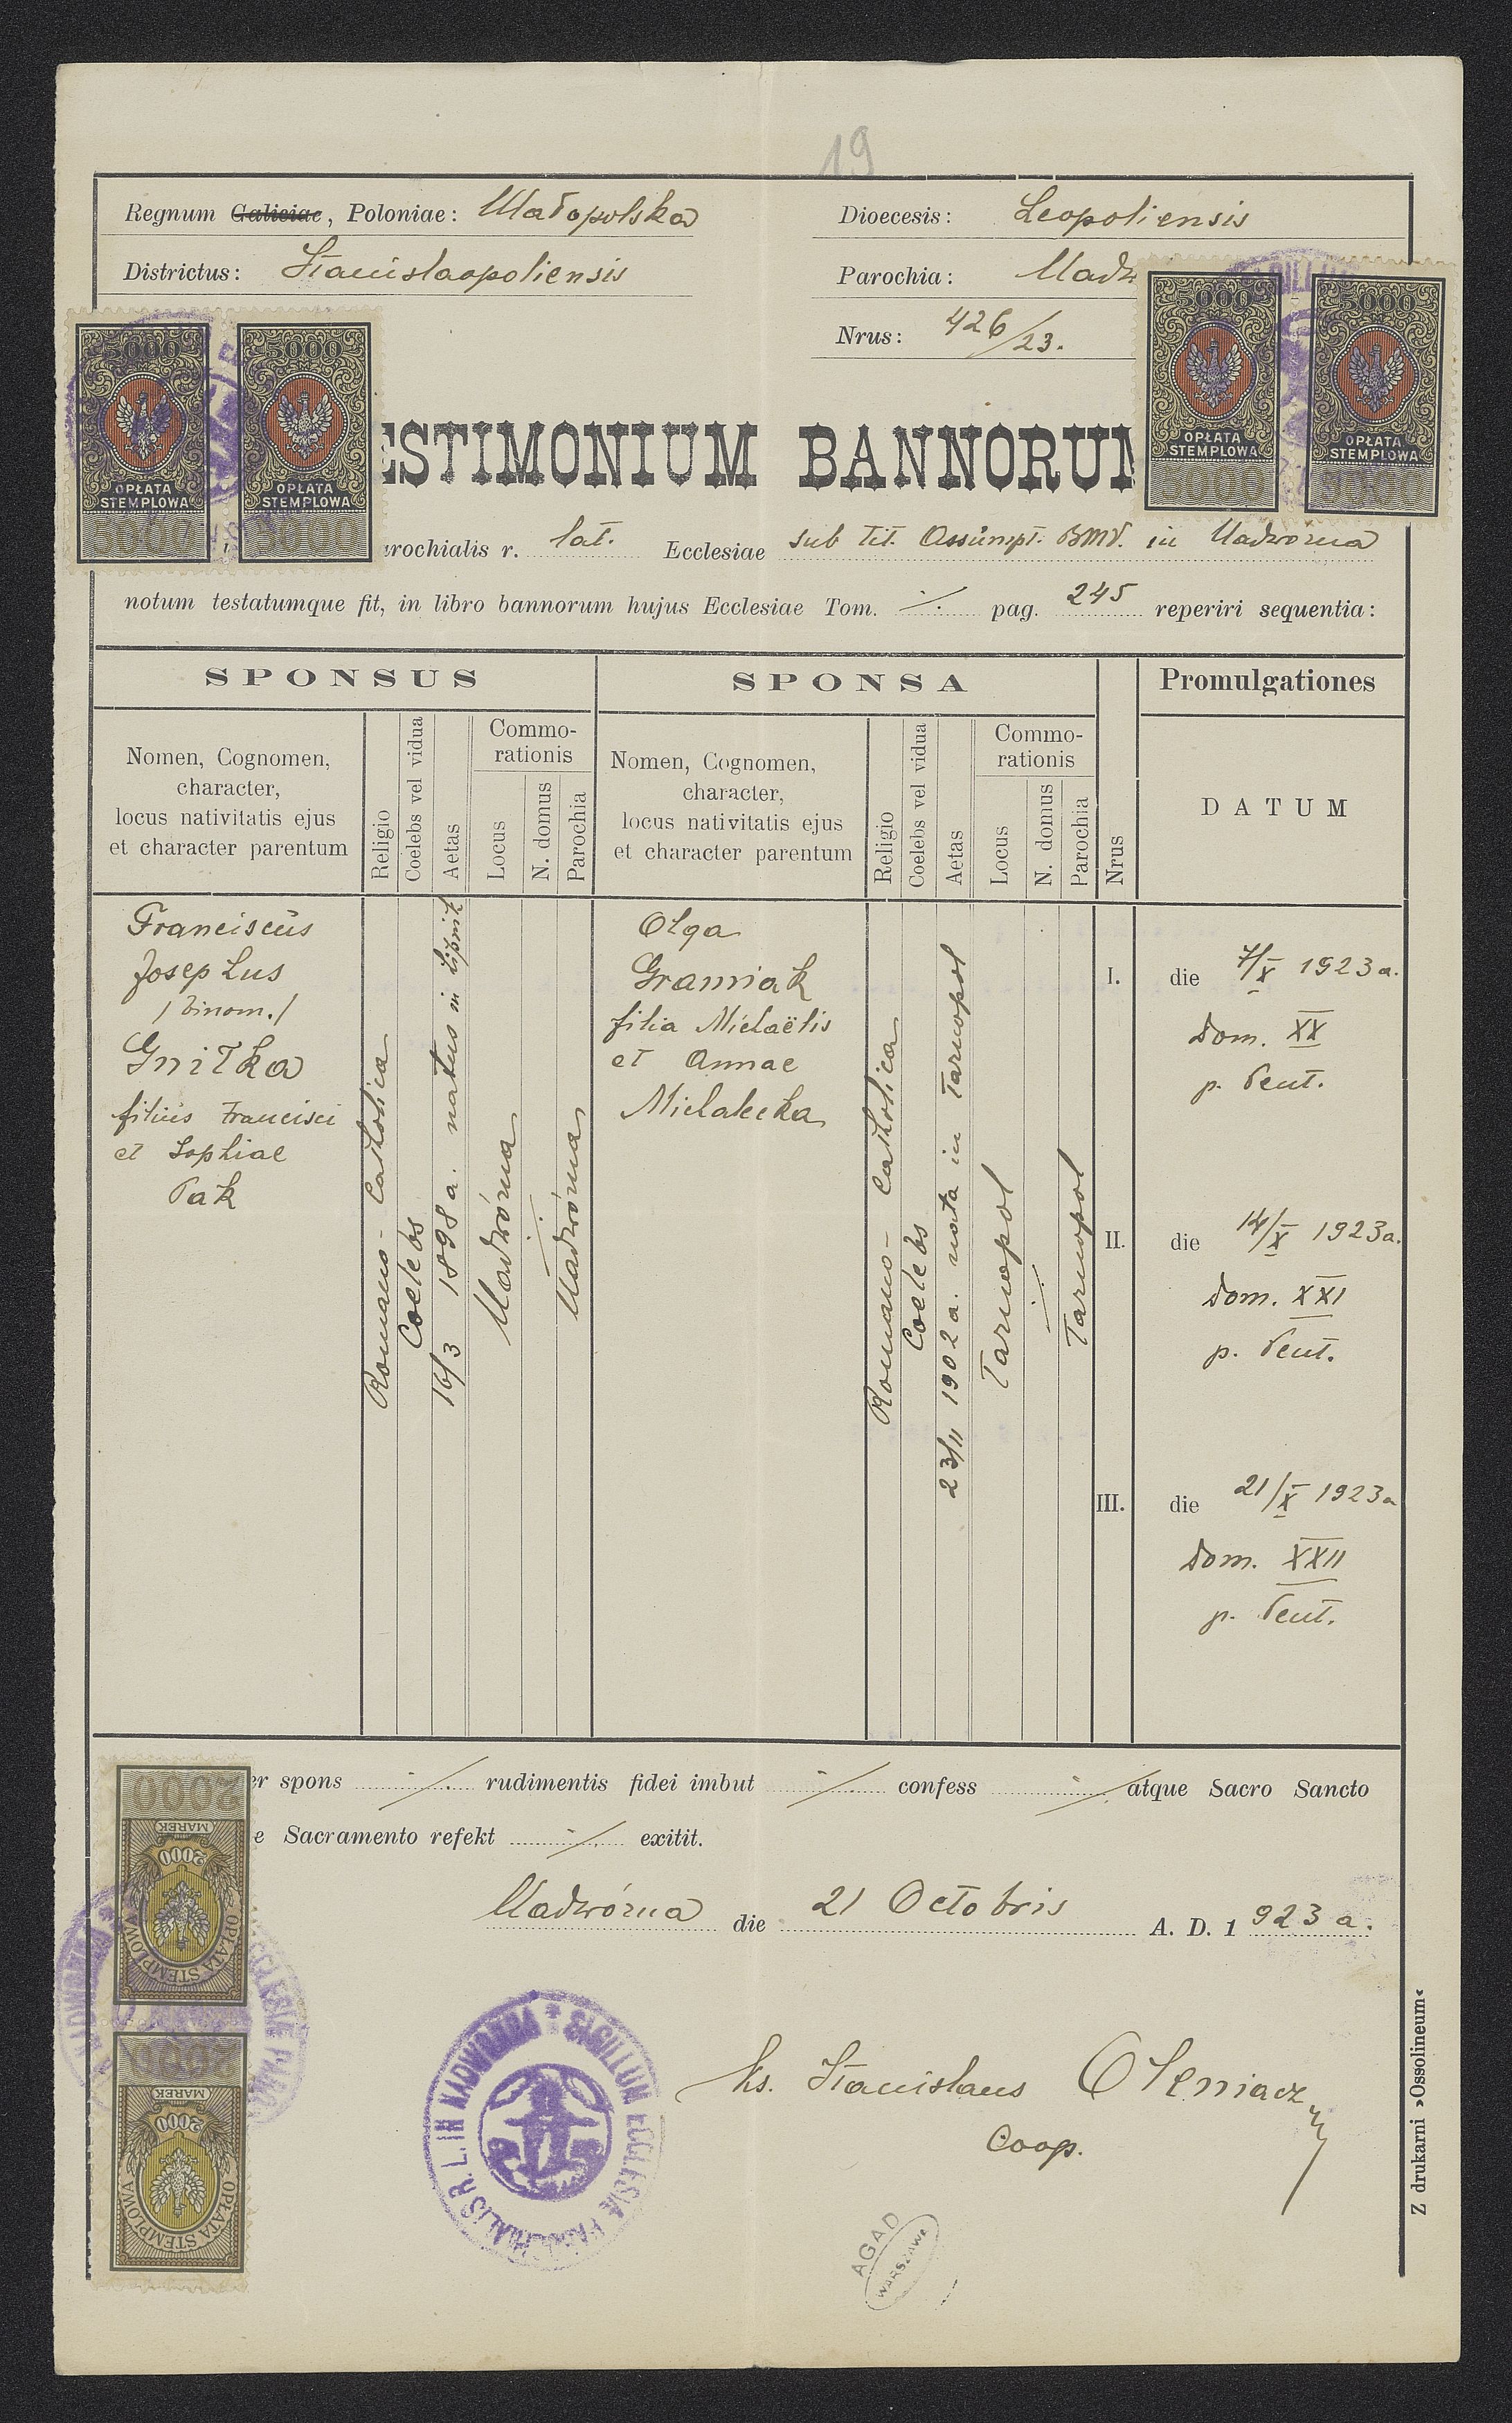 19
Regnum Galiciae, Poloniae: Małopolska
Dioecesis: Leopoliensis
Districtus: Stanislaopoliensis
Parochia: Nadw
Nrus: 426/23.
5000 OPŁATA STEMPLOWA 5000
5000 OPŁATA STEMPLOWA 5000
5000 OPŁATA STEMPLOWA 5000
5000 OPŁATA STEMPLOWA 5000
ESTIMONIUM BANNORUM
arochialis r. lat. Ecclesiae sub tit. Assumpt. BMV. in Nadwórna
notum testatumque fit, in libro bannorum hujus Ecclesiae Tom. ·/. pag. 245 reperiri sequentia:
SPONSUS
SPONSA
Nrus
Promulgationes
Nomen, Cognomen,
character,
locus nativitatis ejus
et character parentum
Religio
Coelebs vel vidua
Aetas
Commo-
rationis
Locus
N. domus
Parochia
Nomen, Cognomen,
character,
locus nativitatis ejus
et character parentum
Religio
Coelebs vel vidua
Aetas
Commo-
rationis
Locus
N. domus
Parochia
DATUM
Franciscus
Josephus
/binom./
Gnitka
filius Francisci
et Sophiae
Pak
Romano-Catholica
Coelebs
16/3 1898 a. natus in
Nadwórna
·/.
Nadwórna
Olga
Gramiak
filia Michaëlis
et Annae
Michalecka
Romano-Catholica
Coelebs
23/11 1902 a. nata in Tarnopol
Tarnopol
·/.
Tarnopol
I. die 7/X 1923 a.
Dom. XX
p. Pent.
II. die 14/X 1923 a.
Dom. XXI
p. Pent.
III. die 21/X 1923 a
Dom. XXII
p. Pent.
er spons ·/. rudimentis fidei imbut ·/. confess ·/. atque Sacro Sancto
e Sacramento refekt ·/. exitit.
Nadwórna die 21 Octobris A. D. 1923 a.
2000 MAREK 2000 OPŁATA STEMPLOWA
2000 MAREK 2000 OPŁATA STEMPLOWA
SIGILLUM ECCLESIÆ PAROCHIALIS R. L. IN NADWÓRNA
ks. Stanislaus Oleniacz
Coop.
AGAD
WARSZAWA
Z drukarni »Ossolineum«